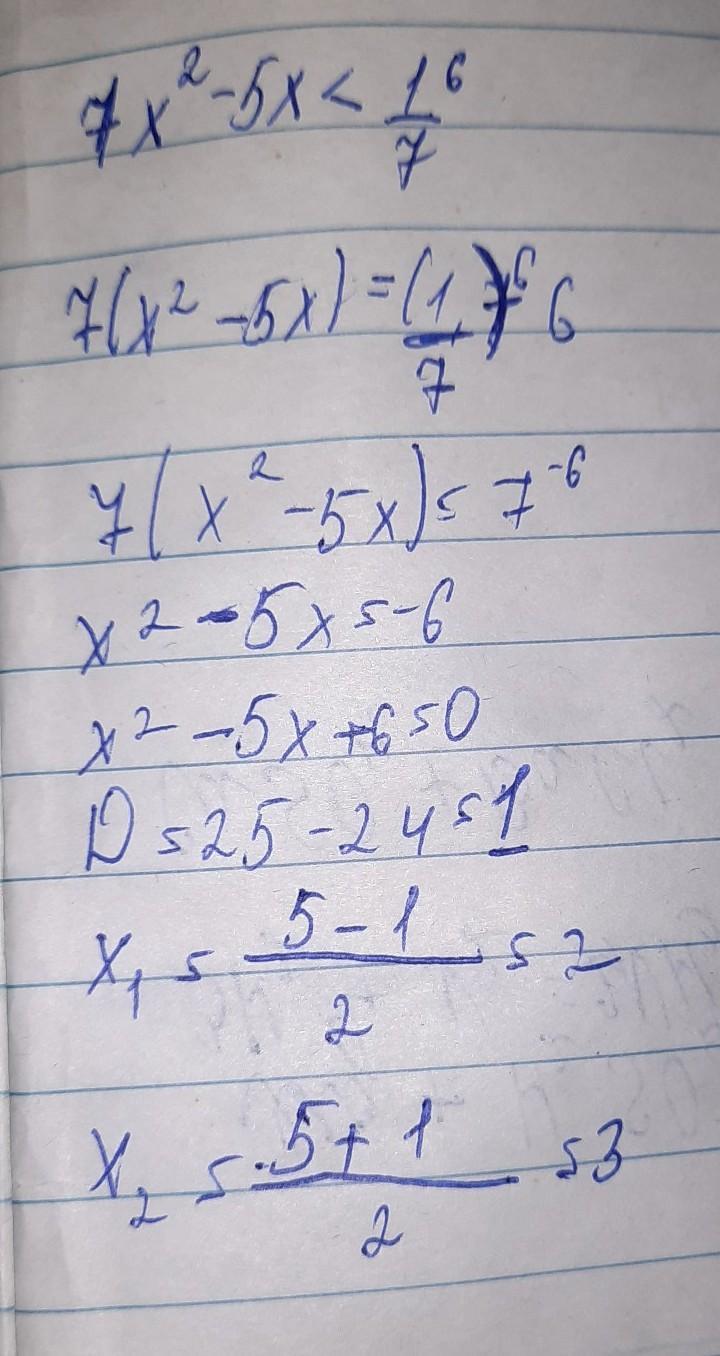 7x² -5x < 1⁶/7
7(x² -5x) = (1/7)⁶ 6
7(x² -5x) = 7⁻⁶
x² -5x = -6
x² -5x +6 = 0
D = 25 - 24 = 1
x₁ = (5 - 1)/2 = 2
x₂ = (5 + 1)/2 = 3